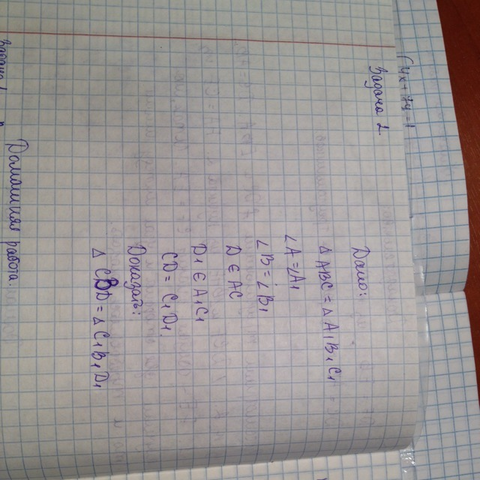 Задача 2
Дано:
△ABC = △A₁B₁C₁
∠A = ∠A₁
∠B = ∠B₁
D ∈ AC
D₁ ∈ A₁C₁
CD = C₁D₁
Доказать:
△CBD = △C₁B₁D₁
Домашняя работа
Задача 1